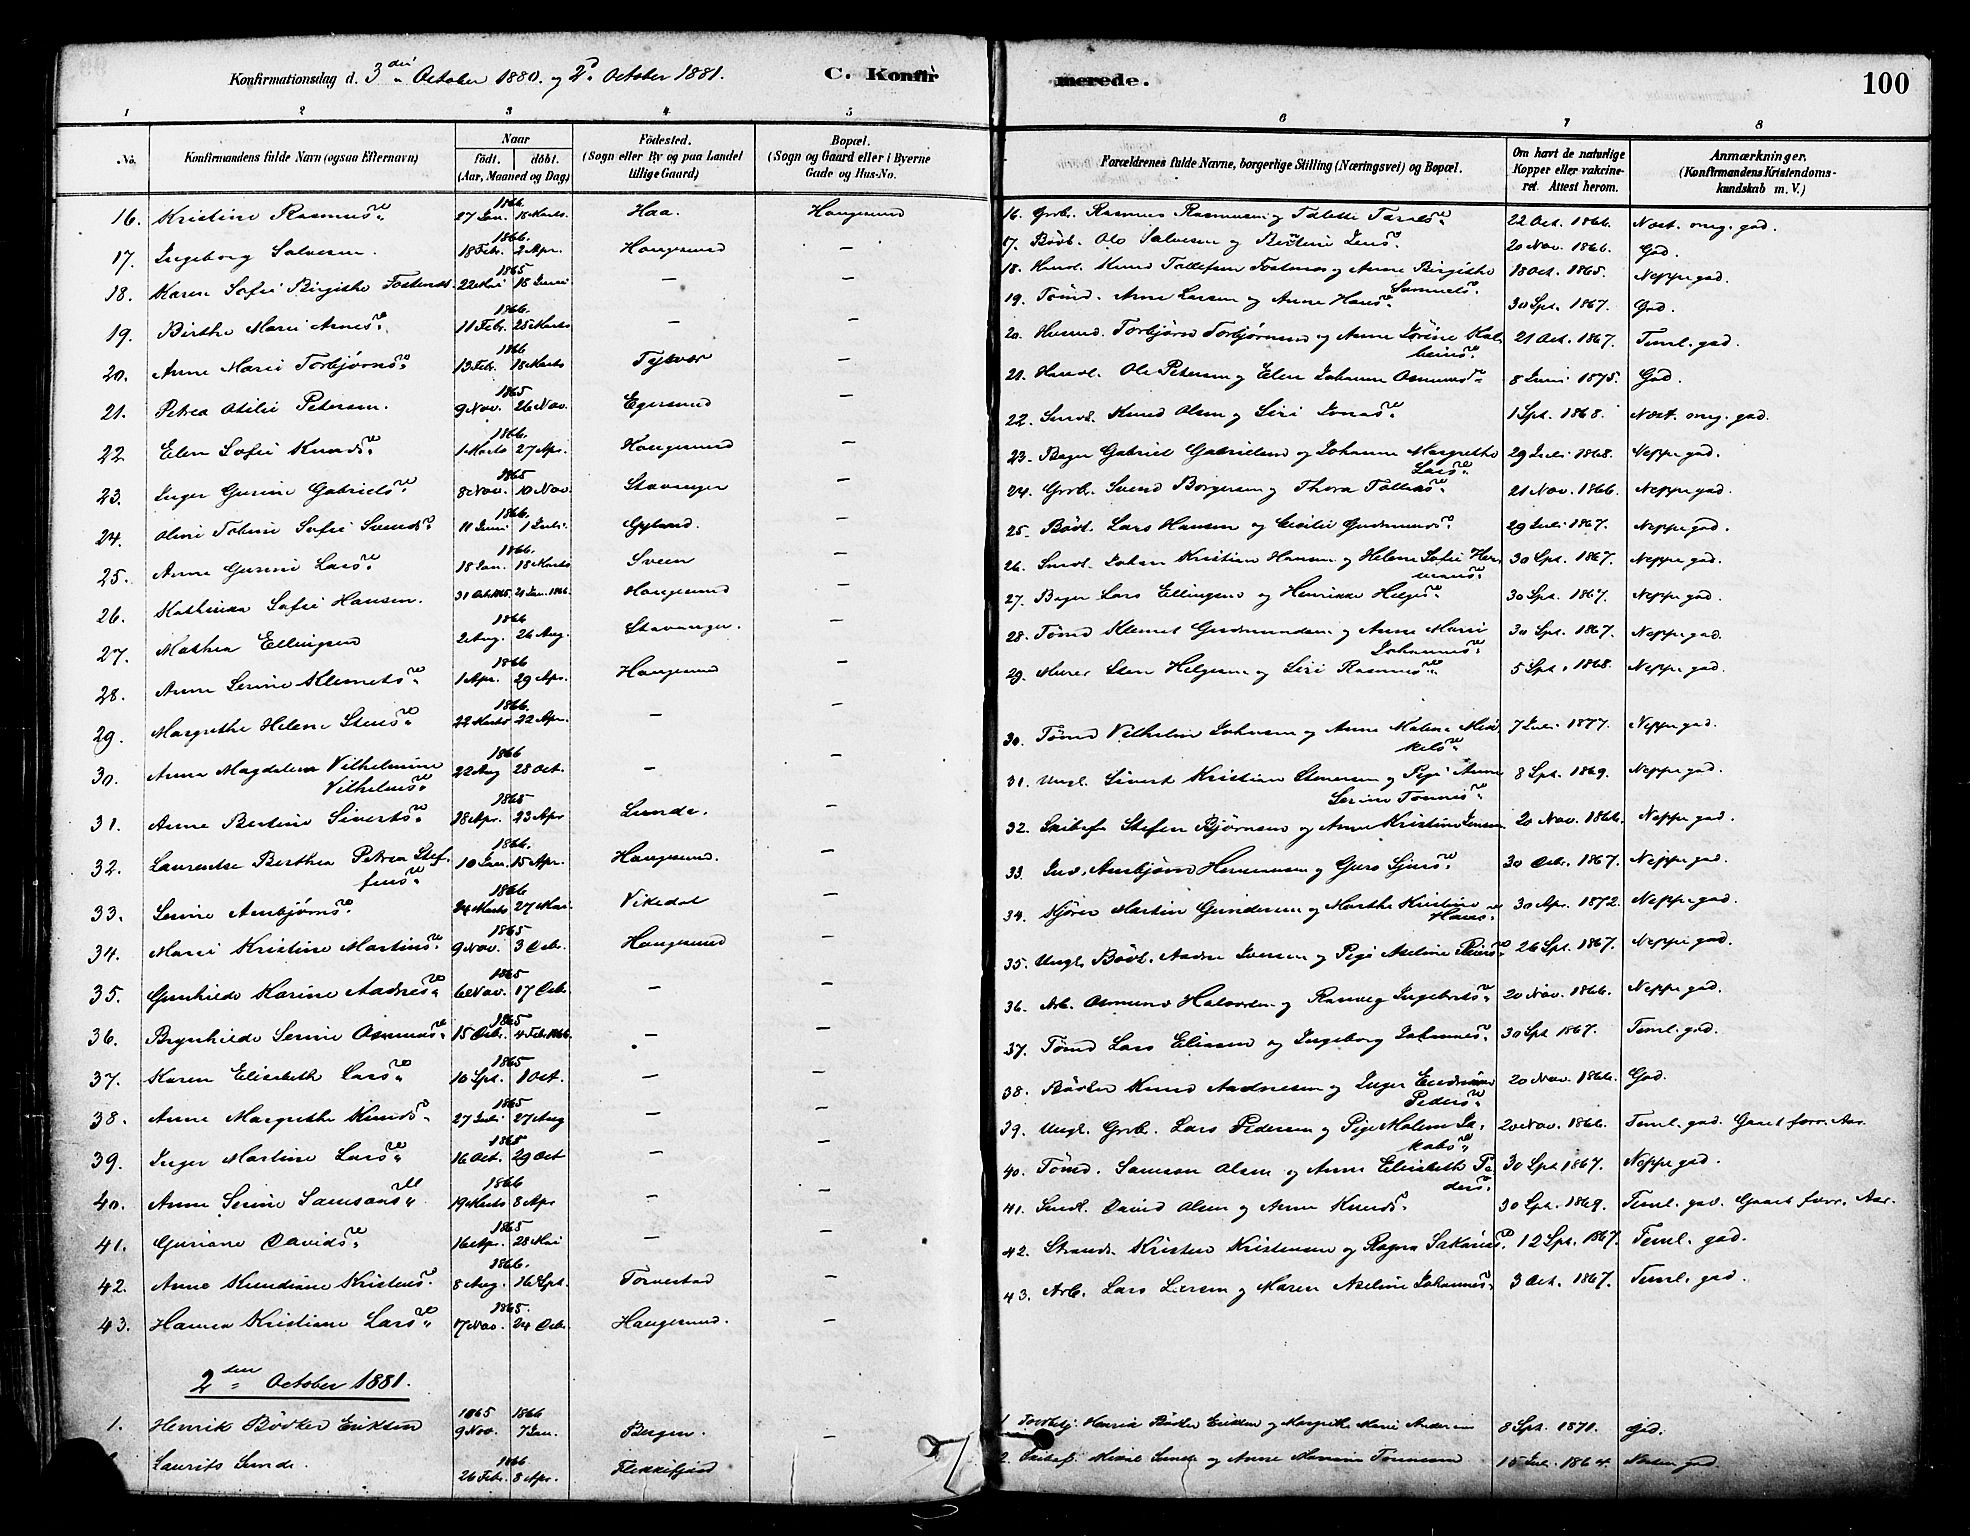 Konfirmationsdag d. 3die October 1880. og 2d. October 1881.
C. Konfir
1 2 3 4 5
No. Konfirmandens fulde Navn (ogsaa Efternavn) Naar födt. döbt. (Aar, Maaned og Dag) Födested. (Sogn eller By og paa Landet tillige Gaard) Bopæl. (Sogn og Gaard eller i Byerne Gade og Hus-No.
16. Kristine Rasmusd. 1866 27 Jan. 18 Marts Haa. Haugesund
17. Ingeborg Salvesen. 1866. 18 Febr. 2 Apr. Haugesund —
18. Karen Sofie Birgithe Fostenes. 1865 22 Mai 18 Juni — —
19. Birthe Marie Arnesd. 1866. 11 Febr. 25 Marts — —
20. Anne Marie Torbjørnsd. 1866 13 Febr. 18 Marts Tysvær —
21. Petrea Otilie Petersen. 1865 9 Nov. 26 Nov. Egersund —
22 Elen Sofie Knudsd. 1866. 1 Marts 27 Apr. Haugesund —
23. Inger Gurine Gabrielsd. 1865 8 Nov. 10 Nov. Stavanger —
24. Oline Tobine Sofie Svendsd. 1866. 11 Juni 1 Juli. Gyland. —
25. Anne Gurine Larsd. 1866. 18 Jan. 18 Marts Sveen —
26. Kathinka Sofie Hansen. 31 Oct. 1865. 21 Jan. 1866. Haugesund —
27. Mathea Ellingsen 1866 2 Aug. 26 Aug Stavanger. —
28. Anne Serine Klemetsd. 1866 1 Apr. 29 Apr. Haugesund —
29. Margrethe Helene Stensd. 1866. 22 Marts 22 Apr. — —
30. Anna Magdalena Vilhelmine Vilhelmsd. 1866 22 Aug 28 Oct. — —
31. Anne Bertine Sivertsd. 1865 18 Apr. 23 Apr Lunde. —
32. Laurentse Berthea Petrea Steffensd. 1866. 10 Jan. 15 Apr. Haugesund. —
33. Serine Ambjørnsd. 1866 24 Marts 27 Mai Vikedal —
34. Marie Kristine Martinsd. 1865 9 Nov. 3 Dcbr. Haugesund —
35. Gunhilde Karine Aadnesd. 1865 6 Nov. 17 Dcbr. — —
36. Brynhilde Serine Osmunsd. 1865 15 Dcbr. 4 Febr. 1866. — —
37. Karen Elisabeth Larsd. 1865 10 Spt. 1 Oct. — —
38. Anne Margrethe Knudsd. 1865 27 Juli 27 Aug — —
39. Inger Martine Larsd. 1865 16 Oct. 29 Oct — —
40. Anne Serine Samsonsd. 1866 19 Marts 8 Apr — —
41. Guriane Davidsd. 1865 16 Apr. 28 Mai — —
42. Anne Kundiane Kristensd. 1866. 8 Aug. 16 Spt. Torvestad —
43. Hansea Kristiane Larsd. 1865. 17 Nov. 24 Dcbr. Haugesund. —
2den October 1881.
1. Henrik Bødker Eriksen 1865 1866 9 Nov. 7 Jan. Bergen. —
Laurits Lunde. 1866 26 Febr. 8 Apr. Flekkefjord
merede.
100
6 7 8
Forældrenes fulde Navne, borgerlige Stilling (Næringsvei) og Bopæl. Om havt de naturlige Kopper eller vakcineret. Attest herom. Anmærkninger. (Konfirmandens Kristendomskundskab m. V.)
16. Grb. Rasmus Rasmussen og Talette Taralsd. 22 Oct. 1866. Næst. mg. god.
17. Bødk. Ole Salvesen og Bertine Jensd. 20 Nov. 1866. God.
18. Handl. Knud Tollefsen Fostenes og Anne Birgithe Samuelsd. 18 Oct. 1865. Neppe god.
19. Tømd. Arne Larsen og Anne Hansd. 30 Spt. 1867. God.
20. Husmd. Torbjørn Torbjørnsen og Anne Serine Kolbeinsd. 21 Oct. 1867. Teml. god.
21. Handl. Ole Petersen og Elen Johanne Osmundsd. 8 Juni 1875. God.
22. Smed. Knud Olsen og Siri Jonasd. 1 Spt. 1868. Næst. mg. god.
23. Bager Gabriel Gabrielsen og Johanne Margrethe Larsd. 29 Juli 1868. Neppe god.
24. Grb. Svend Borgersen og Thora Tolleisd. 21 Nov. 1866. Neppe god.
25. Bødk. Lars Hansen og Cicilie Gudmundsd. 29 Juli 1867. Neppe god.
26. Smed. Johan Kristian Hansen og Helene Sofie Hermansd. 30 Spt. 1867. Neppe god.
27. Bager Lars Ellingsen og Henrikke Helgesd. 30 Spt. 1867. Neppe god.
28. Tømd Klemet Gudmundsen og Anne Marie Johannesd. 30 Spt. 1867. Neppe god.
29. Murer Sten Helgesen og Siri Rasmusd. 5 Spt. 1868. Neppe god.
30. Tømd Vilhelm Johnsen og Anne Malene Mikkelsd. 7 Juli 1877. Neppe god.
31. Ungk. Sivert Kristian Stenersen og Pige Anne Serine Tønnesd. 8 Spt. 1869. Neppe god.
32. Skibsf. Stefen Bjørnsen og Anne Kristine Jensen 20 Nov. 1866. Neppe god.
33. Ambjørn Hermansen og Guro Sjursd. 30 Dcbr. 1867. Neppe god.
34. Kjører Martin Gundersen og Marthe Kristine Hansd. 30 Apr. 1872. Neppe god.
35. Ungk. Bødk. Aadne Iversen og Pige Aseline Peersd. 26 Spt. 1867. Neppe god.
36. Arb. Osmund Halvorsen og Ranveg Ingebretsd. 20 Nov. 1866. Neppe god.
37. Tømd Lars Eliasen og Ingeborg Johannesd. 30 Spt 1867. Teml. god.
38. Bødker Knud Aadnesen og Inger Endriane Pedersd. 20 Nov. 1866. God.
39. Ungk. Grb. Lars Pedersen og Pige Malene Jakobsd. 20 Nov. 1866. Teml. god. Gaaet forr. Aar.
40. Tømd. Samson Olsen og Anne Elisabeth Pedersd. 30 Spt 1867. Neppe god.
41. Smed. David Olsen og Anne Knudsd. 30 Spt. 1869. Teml. god. Gaaet forr. Aar.
42. Strands. Kristen Kristensen og Ragna Sakariasd. 12 Spt. 1867. Teml. god.
43. Arb. Lars Larsen og Maren Aseline Johannesd. 3 Oct. 1867. Teml. god.
1 Henrik Bødker Eriksen og Margrethe Marie Andersen 8 Spt. 1871. God.
2. Skibsf. Mikal Lunde og Anne Tønnesen 15 Juli 1864. Næsten god.